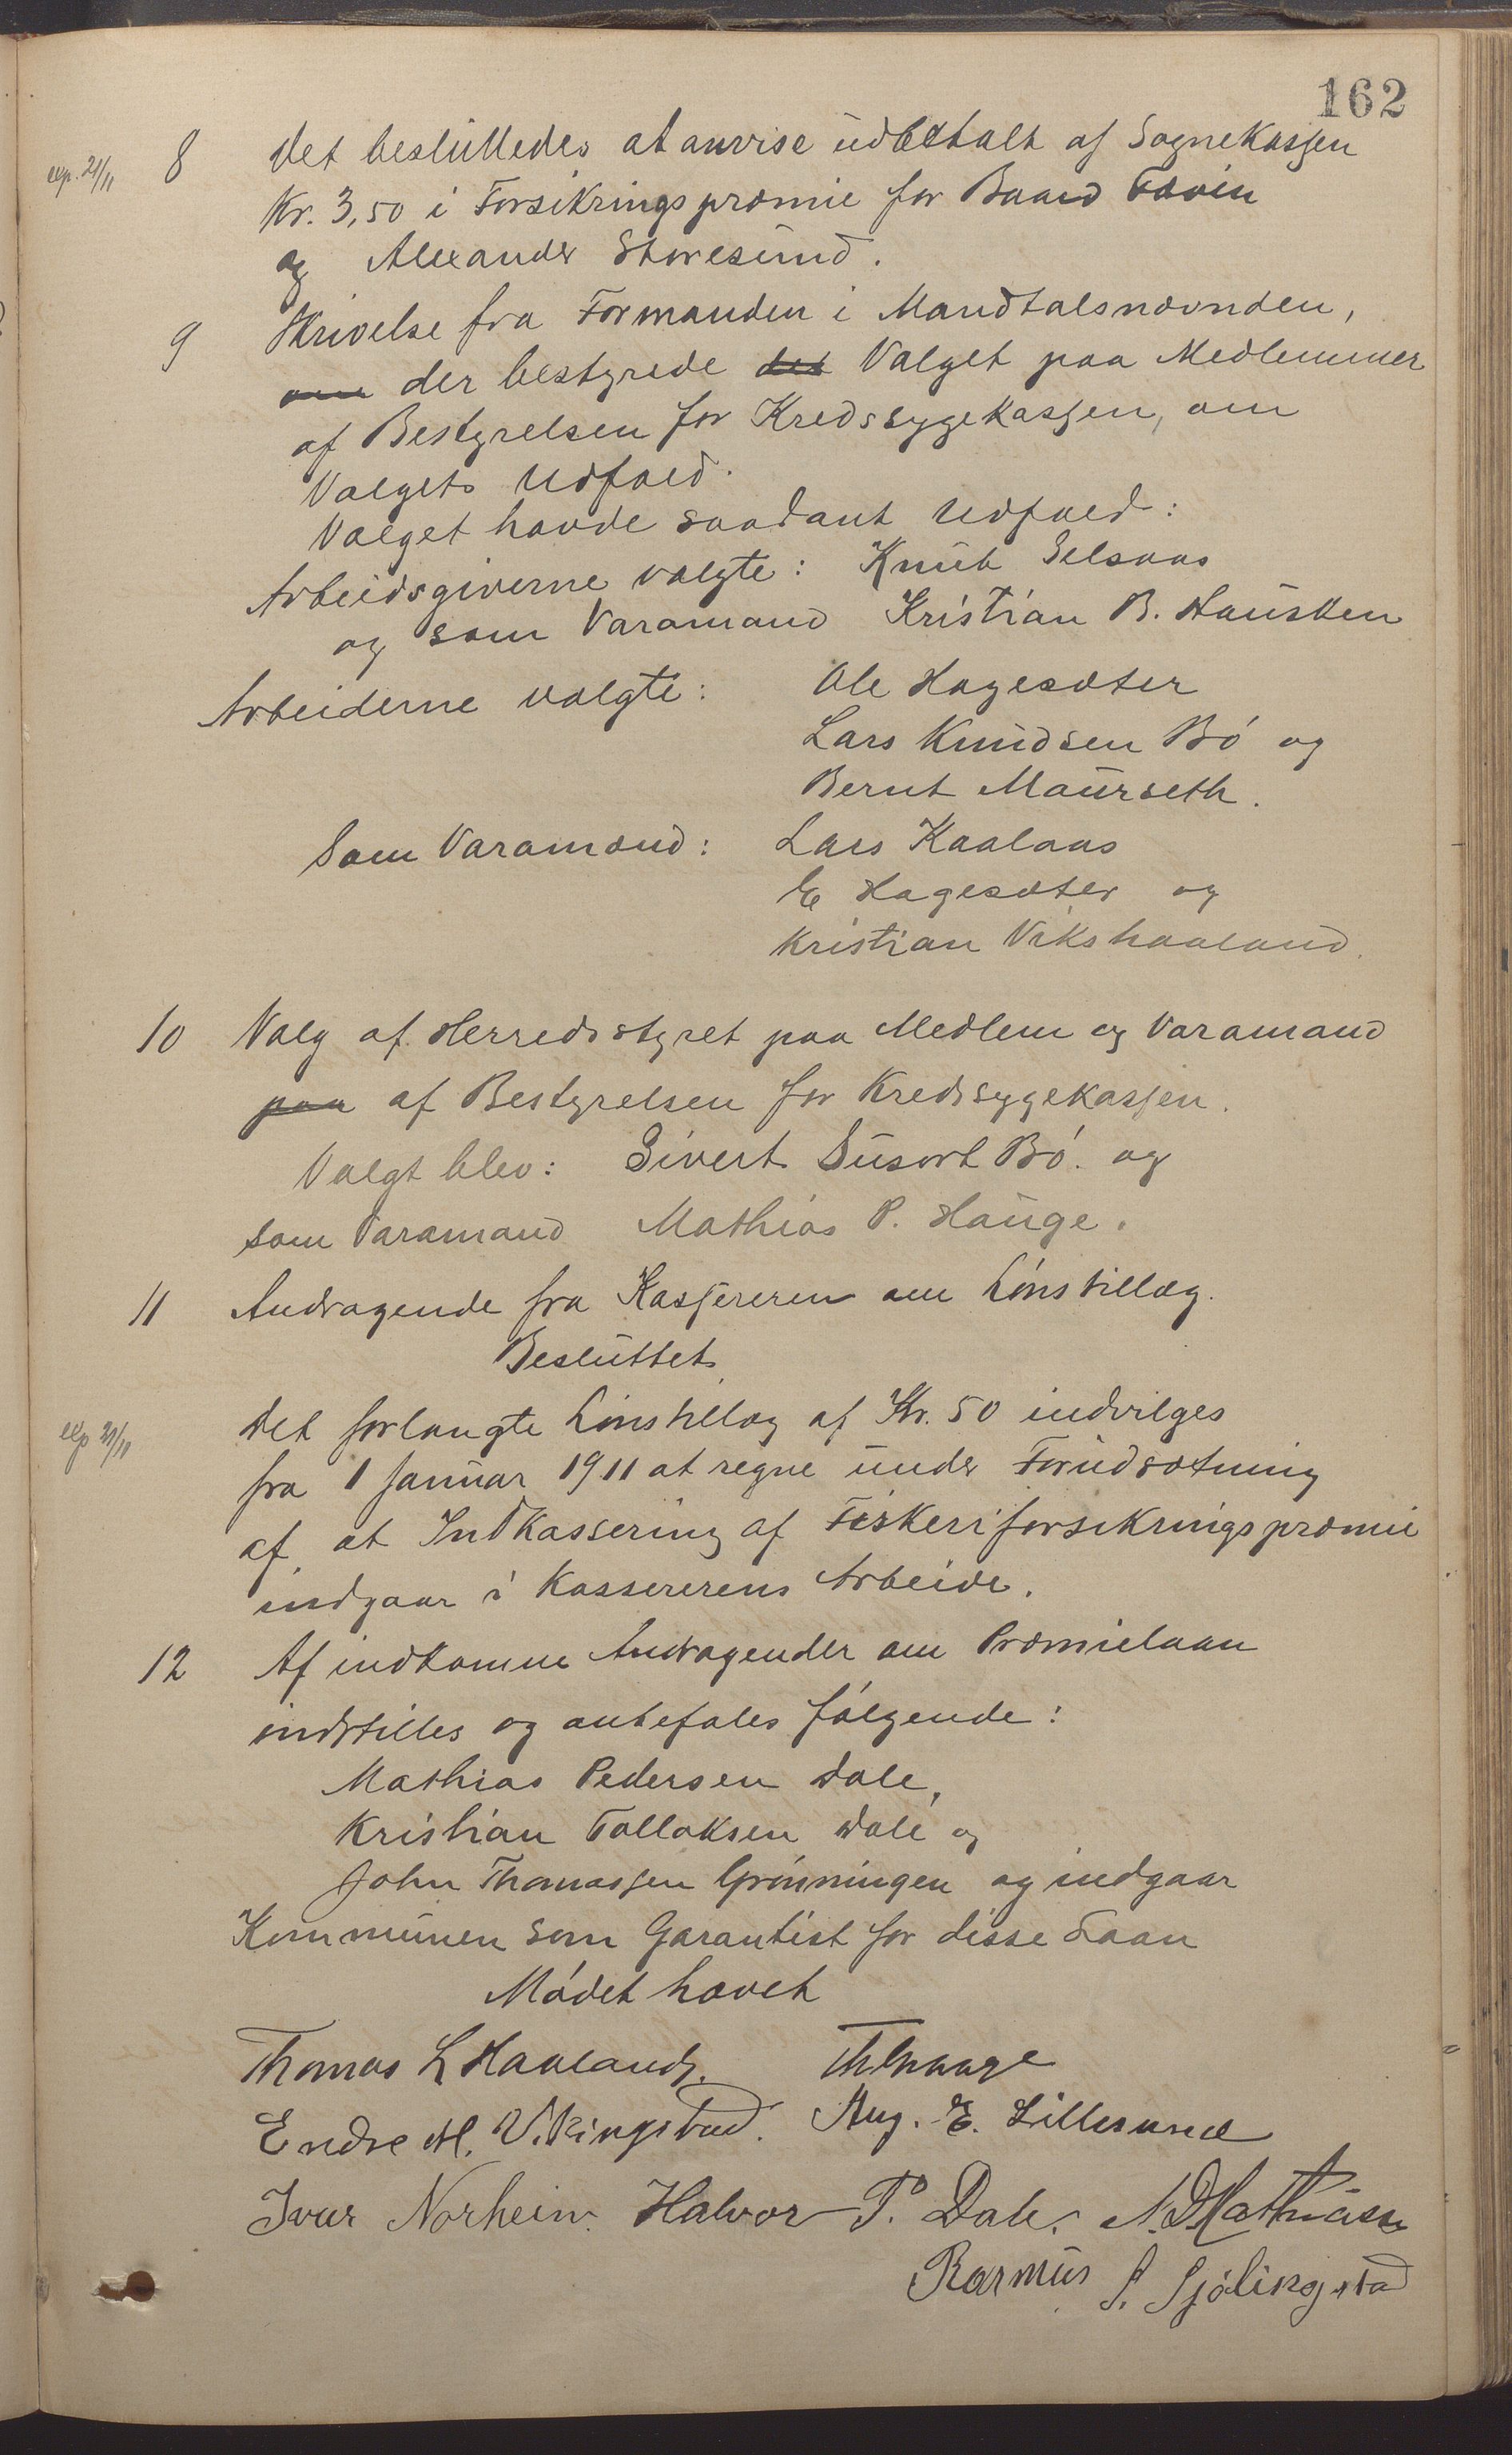 162
exp. 21/11
8 Det besluttedes at anvise udbetalt af Sognekassen
Kr. 3,50 i Forsikringspræmie for Baard Edvin
og Alexander Storesund.
9 Skrivelse fra Formanden i Mandtalsnævnden,
om der bestyrede det Valget paa Medlemmer
af Bestyrelsen for Kredssygekassen, om
Valgets Udfald.
Valget havde saadant Udfald:
Arbeidsgiverne valgte: Knut Selsaas
og som Varamand Kristian B. Hausken
Arbeiderne valgte: Ole Hagesæter
Lars Knudsen Bö og
Bernt Maurseth.
Som Varamænd: Lars Kaalaas
E Hagesæter og
Kristian Vikshaaland.
10 Valg af Herredsstyret paa Medlem og Varamand
paa af Bestyrelsen for Kredssygekassen.
Valgt blev: Sivert Susort Bö. og
som Varamand Mathias P. Hauge.
11 Andragende fra Kassereren om Lönstillæg.
Besluttet
exp 21/11
Det forlangte Lönstillæg af Kr. 50 indvilges
fra 1 Januar 1911 at regne under Forudsætning
af at Indkassering af Fiskeriforsikringspræmie
indgaar i Kassererens Arbeide.
12 Af indkomne Andragender om Præmielaan
indstilles og anbefales fölgende:
Mathias Pedersen Dale,
Kristian Tollaksen Dale og
John Thomassen Grönningen og indgaar
Kommunen som Garantist for disse Laan
Mödet hævet
Thomas L Haaland.
Endre M. Vikingstad. Aug. E. Lillesund
Ivar Norheim. Halvor P. Dale. N. D. Mathiassen
Rasmus S. Sjölingstad